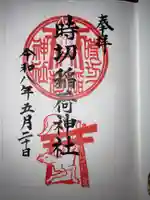 奉拝
時切稲荷神社
令和八年五月二十日